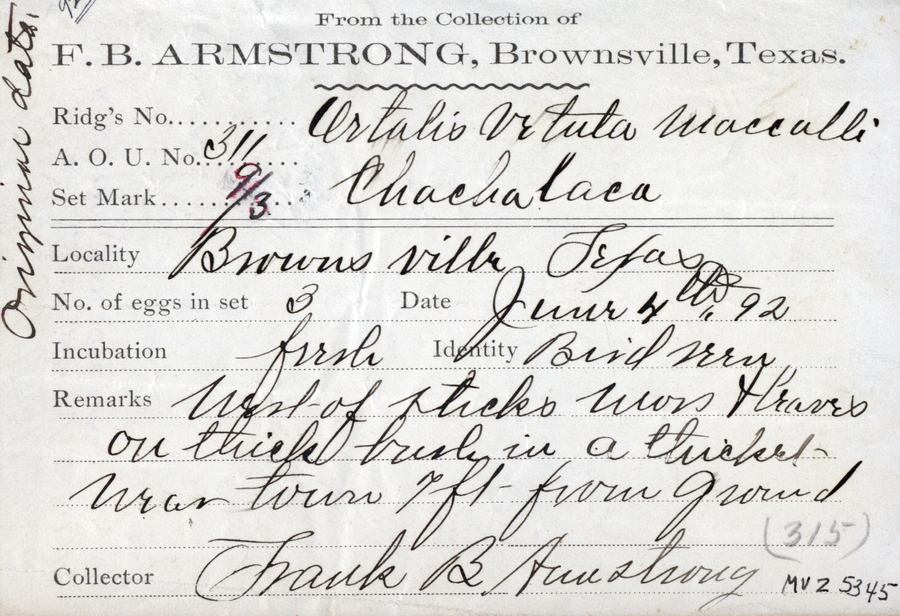 Original data.
From the Collection of
F. B. ARMSTRONG, Brownsville, Texas.
Ridg's No.......... Ortalis Vetula Maccalli
A. O. U. No. 311
Set Mark 9/3 Chachalaca
Locality Browns ville Texas
No. of eggs in set 3 Date June 4th, 92
Incubation fresh Identity Bird seen
Remarks Nest of sticks moss & leaves
on thick bush in a thicket
near town 7 ft from ground
(315)
Collector Frank B Armstrong
MVZ 5345